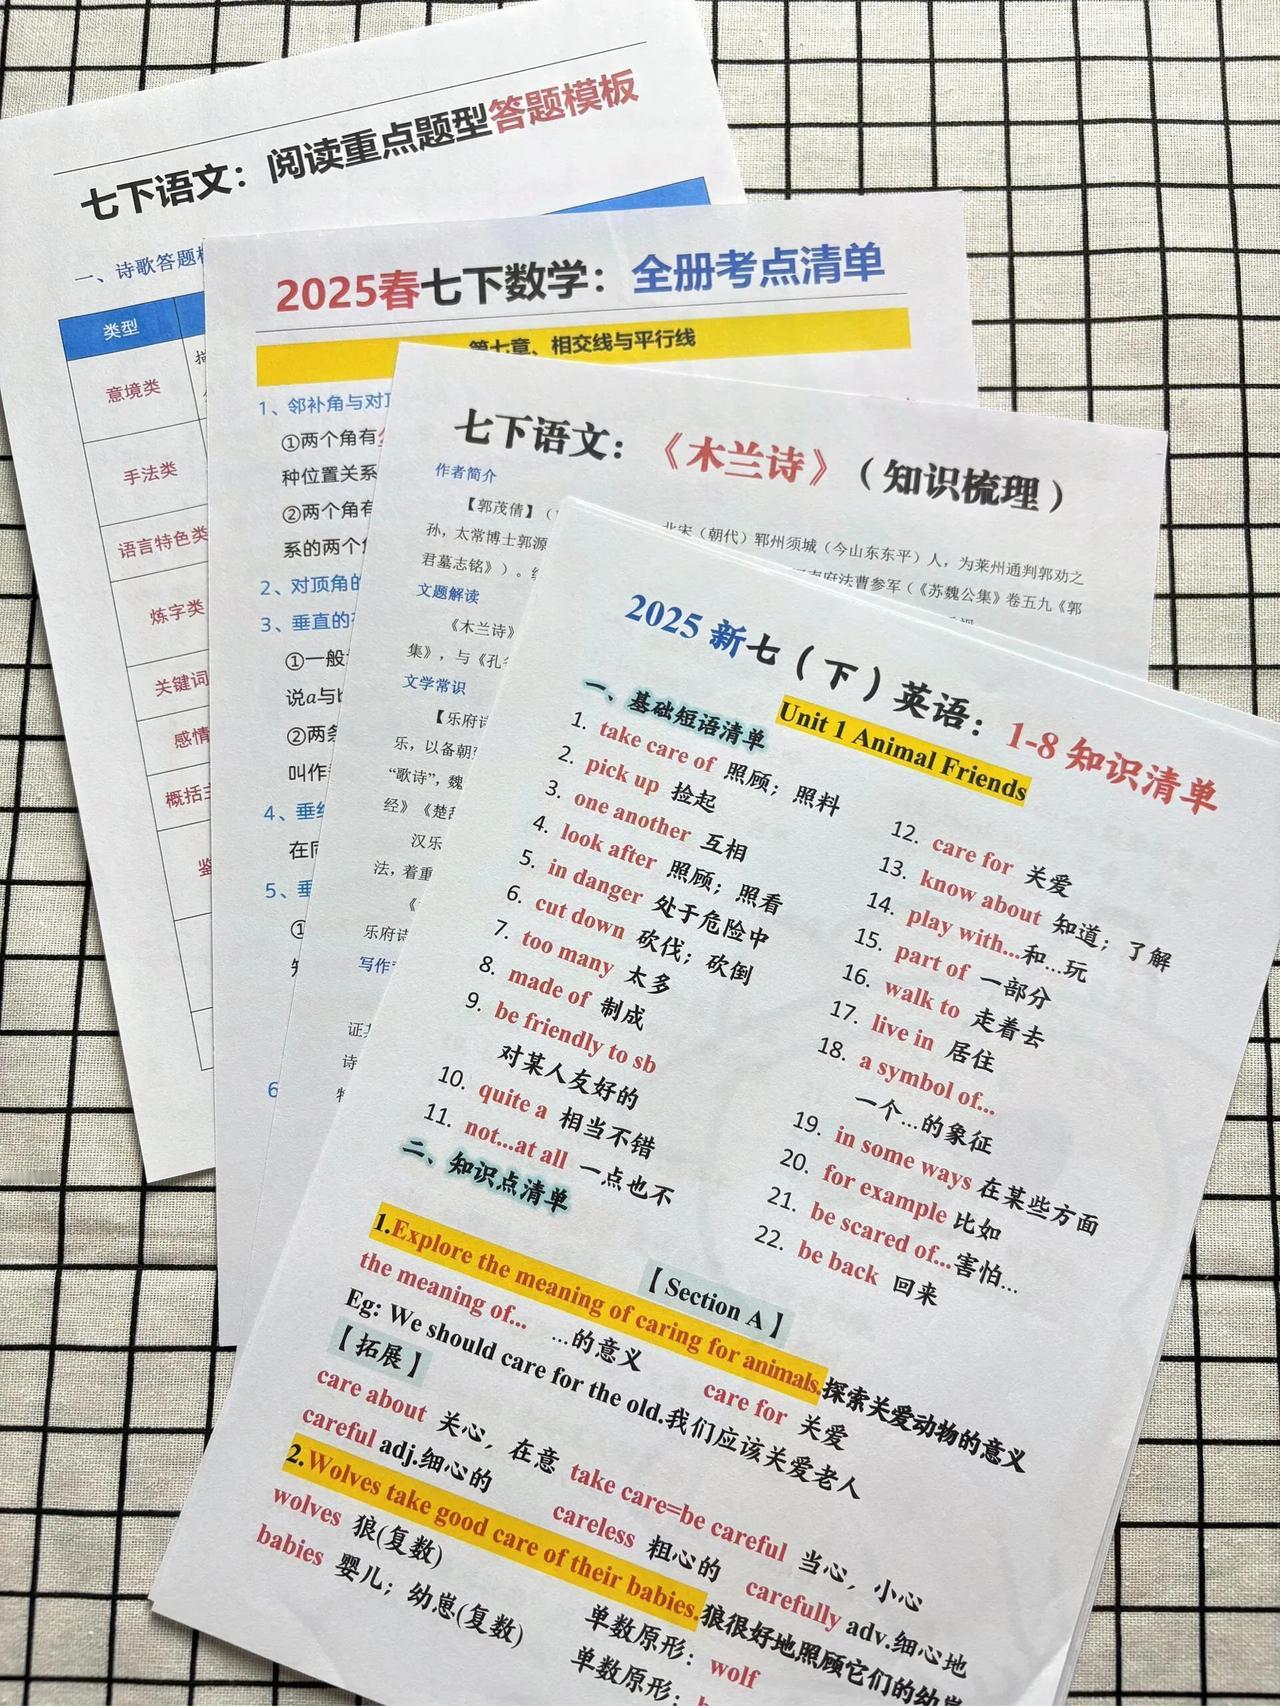 七下语文：阅读重点题型答题模板
一、诗歌答题模
类型
意境类
手法类
语言特色类
炼字类
关键词
感情
概括主
鉴
2025春七下数学：全册考点清单
第七章、相交线与平行线
1、邻补角与对顶
①两个角有
种位置关系
②两个角有
系的两个角
2、对顶角的
3、垂直的
①一般
说a与b
②两条
叫作
4、垂线
在同
5、垂
①
6
七下语文：《木兰诗》（知识梳理）
作者简介
【郭茂倩】（
北宋（朝代）郓州须城（今山东东平）人，为莱州通判郭劝之
孙，太常博士郭源
河南府法曹参军（《苏魏公集》卷五九《郭
君墓志铭》）。
文题解读
《木兰诗》
集》，与《孔
文学常识
【乐府诗
乐，以备朝
“歌诗”，魏
经》《楚辞
汉乐
法，着重
《
乐府诗
写作
证
诗
2025 新七（下）英语：1-8 知识清单
Unit 1 Animal Friends
一、基础短语清单
1. take care of 照顾；照料
2. pick up 捡起
3. one another 互相
4. look after 照顾；照看
5. in danger 处于危险中
6. cut down 砍伐；砍倒
7. too many 太多
8. made of 制成
9. be friendly to sb
对某人友好的
10. quite a 相当不错
11. not...at all 一点也不
12. care for 关爱
13. know about 知道；了解
14. play with...和...玩
15. part of 一部分
16. walk to 走着去
17. live in 居住
18. a symbol of...
一个...的象征
19. in some ways 在某些方面
20. for example 比如
21. be scared of...害怕...
22. be back 回来
二、知识点清单
【Section A】
1.Explore the meaning of caring for animals.探索关爱动物的意义
the meaning of... ...的意义 care for 关爱
Eg: We should care for the old.我们应该关爱老人
【拓展】
care about 关心，在意 take care=be careful 当心，小心
careful adj.细心的 careless 粗心的 carefully adv.细心地
2.Wolves take good care of their babies.狼很好地照顾它们的幼崽
wolves 狼(复数) 单数原形：wolf
babies 婴儿；幼崽(复数) 单数原形：